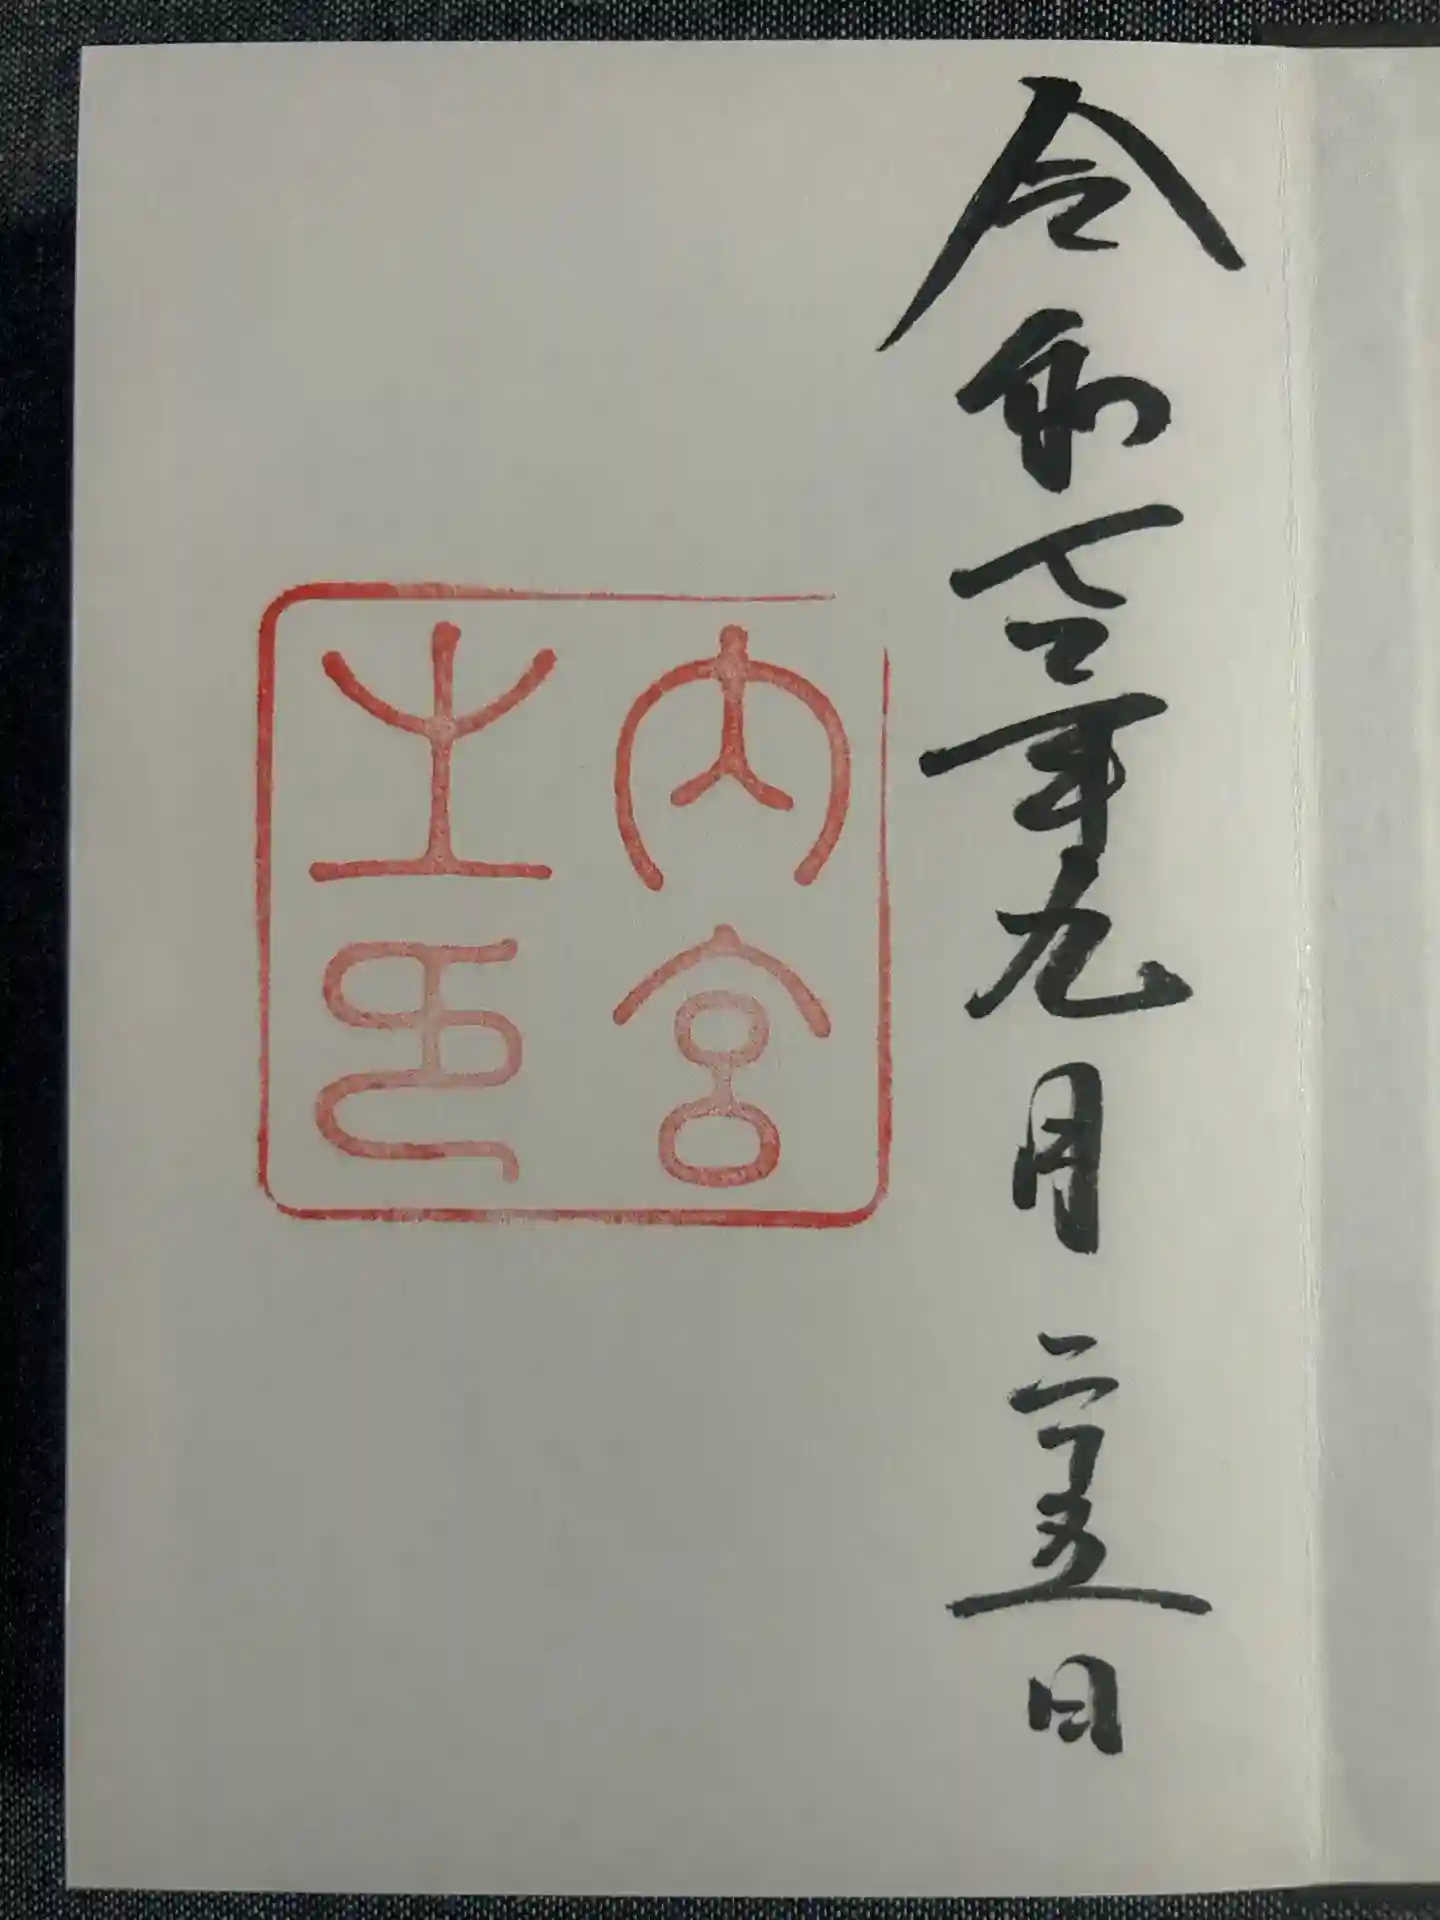 令和七年九月二十五日
内宮之印